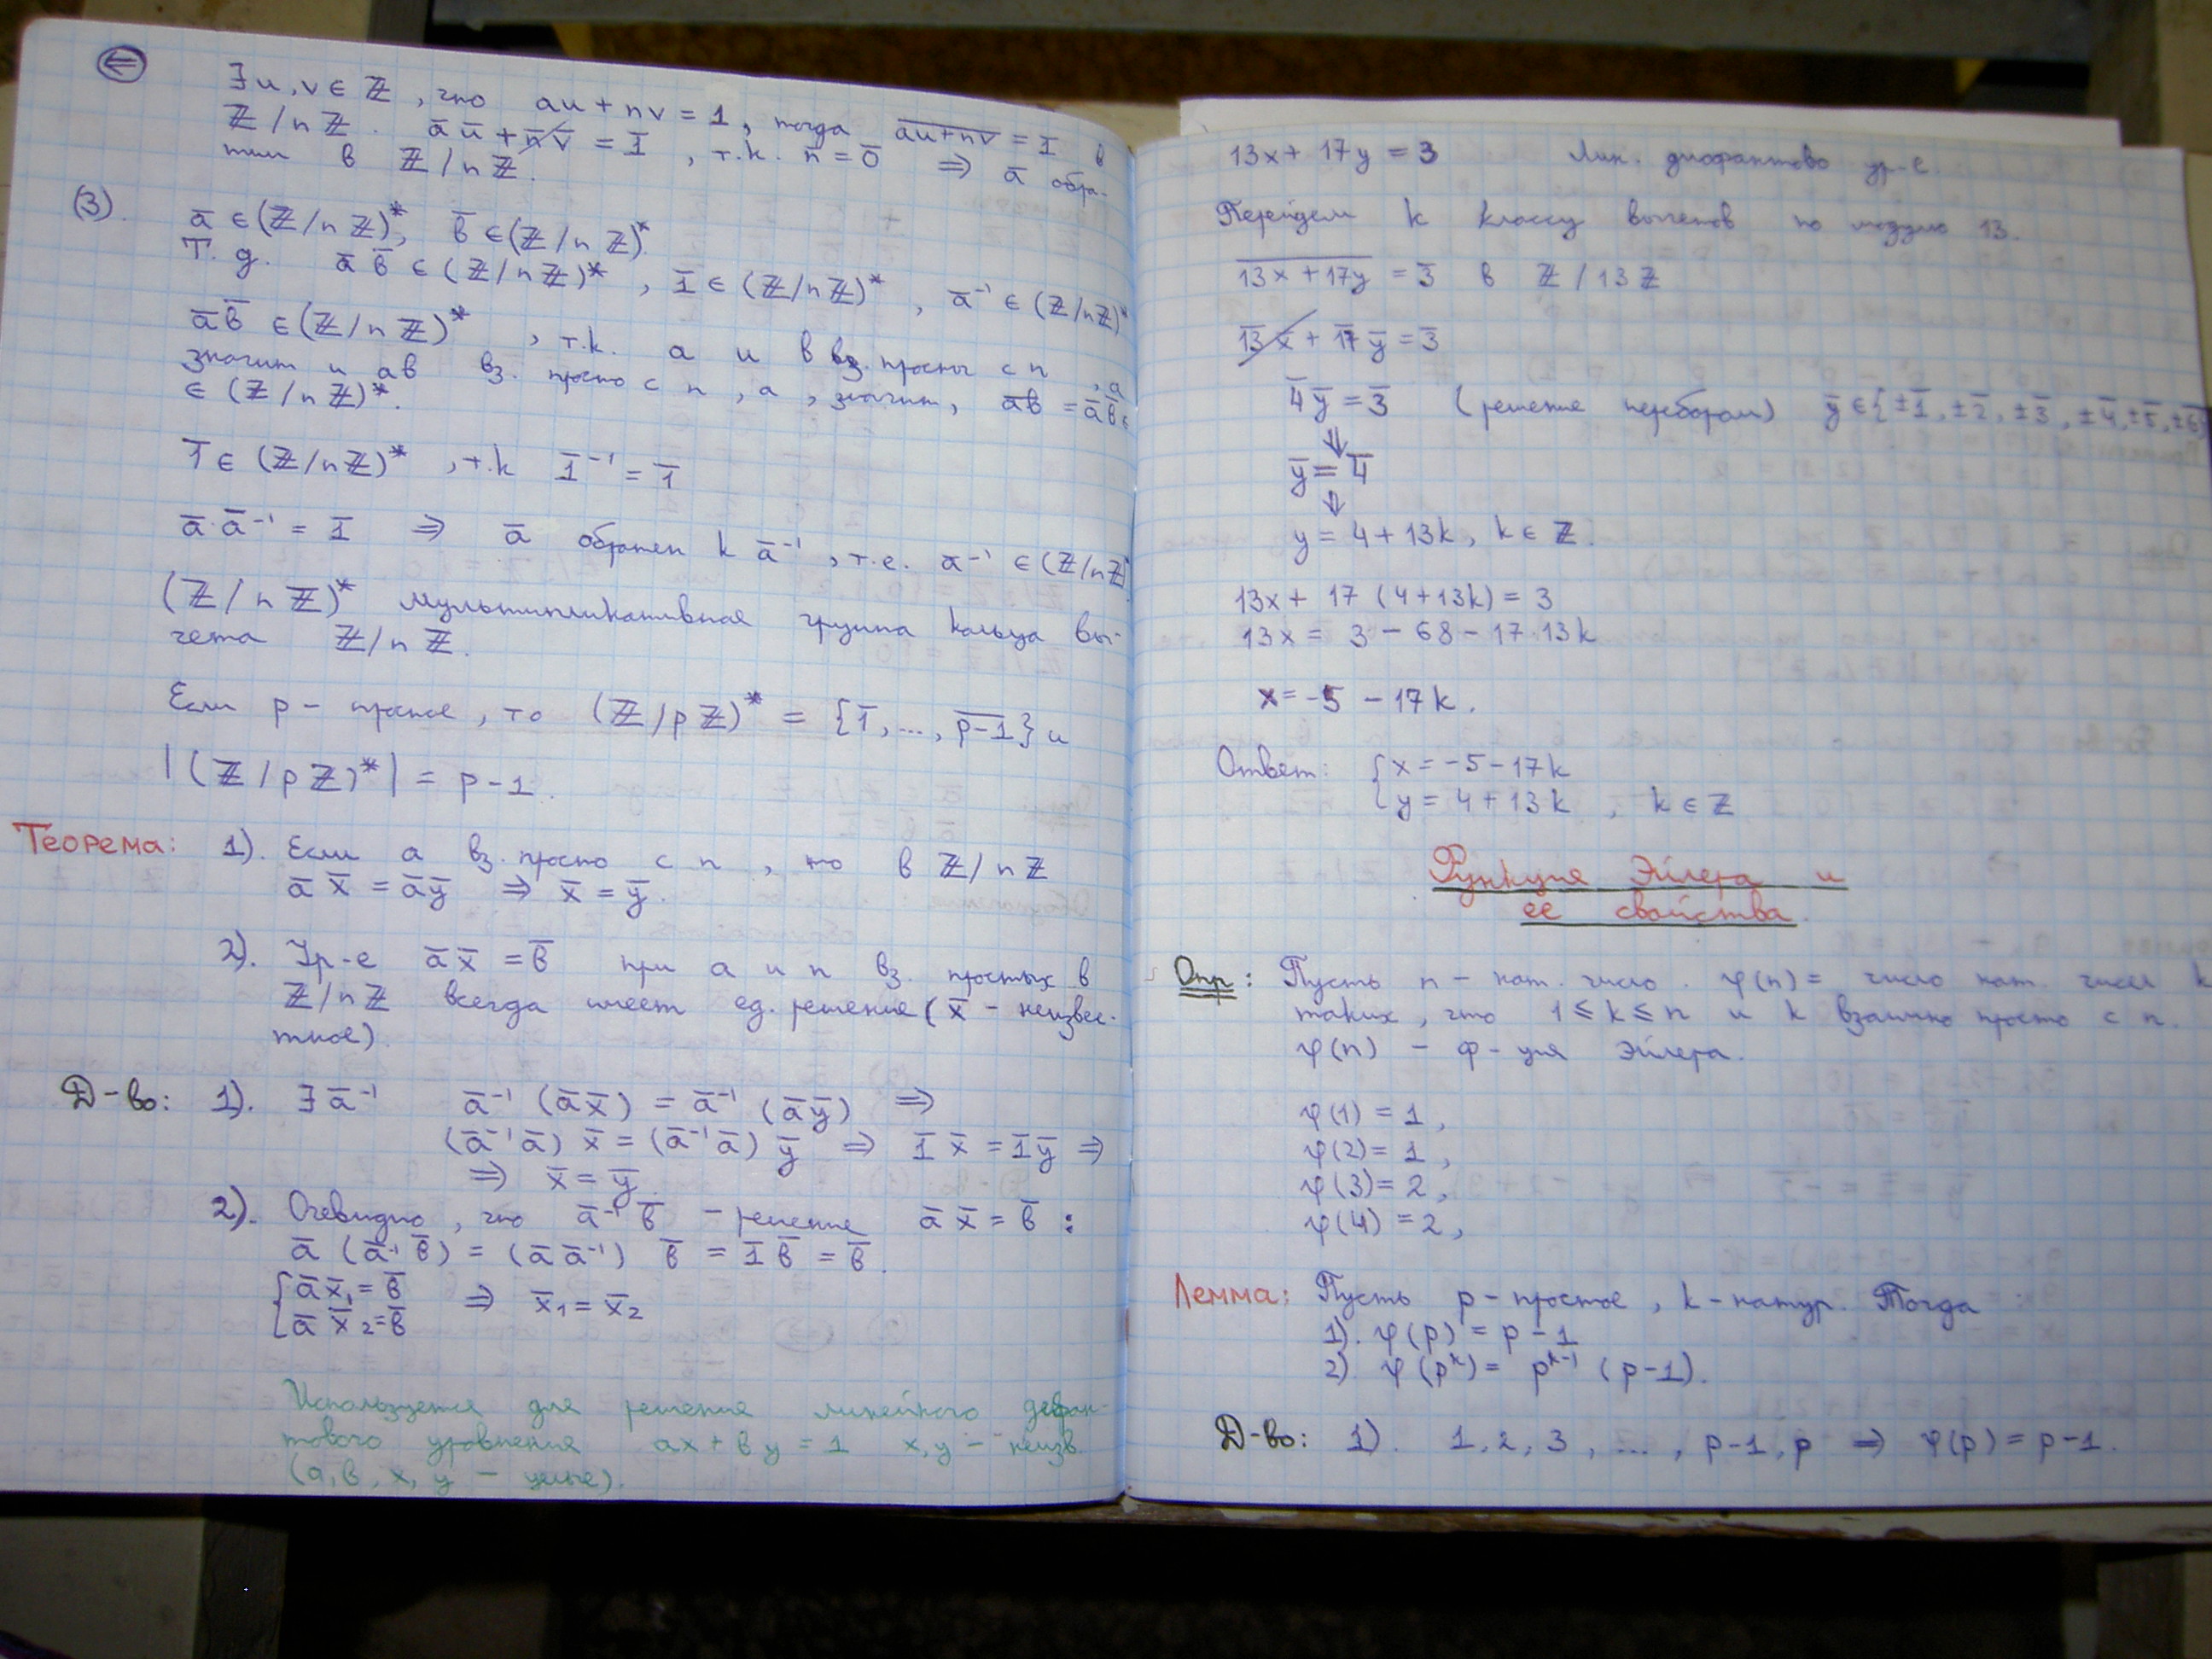 ⇐
∃ u, v ∈ ℤ, что au + nv = 1, тогда \overline{au+nv} = \bar{1} в
ℤ/nℤ. \bar{a}\bar{u} + \bar{n}\bar{v} = \bar{1}, т.к. \bar{n} = \bar{0} ⇒ \bar{a} обра-
тим в ℤ/nℤ.
(3). \bar{a} ∈ (ℤ/nℤ)*, \bar{в} ∈ (ℤ/nℤ)*.
Т. д. \bar{a}\bar{в} ∈ (ℤ/nℤ)*, \bar{1} ∈ (ℤ/nℤ)*, \bar{a}⁻¹ ∈ (ℤ/nℤ)*
\bar{a}\bar{в} ∈ (ℤ/nℤ)*, т.к. a и в вз. просты с n, а
значит и ав вз. просто с n, а, значит, \overline{ав} = \bar{a}\bar{в} ∈
∈ (ℤ/nℤ)*.
\bar{1} ∈ (ℤ/nℤ)*, т.к \bar{1}⁻¹ = \bar{1}
\bar{a}·\bar{a}⁻¹ = \bar{1} ⇒ \bar{a} обратен к \bar{a}⁻¹, т.е. \bar{a}⁻¹ ∈ (ℤ/nℤ)*
(ℤ/nℤ)* мультипликативная группа кольца вы-
чета ℤ/nℤ.
Если p – простое, то (ℤ/pℤ)* = {\bar{1}, ..., \overline{p-1}} и
|(ℤ/pℤ)*| = p-1.
Теорема: 1). Если a вз. просто с n, то в ℤ/nℤ
\bar{a}\bar{x} = \bar{a}\bar{y} ⇒ \bar{x} = \bar{y}.
2). Ур-е \bar{a}\bar{x} = \bar{в} при a и n вз. простых в
ℤ/nℤ всегда имеет ед. решение (\bar{x} – неизвес-
тное).
Д-во: 1). ∃ \bar{a}⁻¹ \bar{a}⁻¹(\bar{a}\bar{x}) = \bar{a}⁻¹(\bar{a}\bar{y}) ⇒
(\bar{a}⁻¹\bar{a})\bar{x} = (\bar{a}⁻¹\bar{a})\bar{y} ⇒ \bar{1}\bar{x} = \bar{1}\bar{y} ⇒
⇒ \bar{x} = \bar{y}.
2). Очевидно, что \bar{a}⁻¹\bar{в} – решение \bar{a}\bar{x} = \bar{в}:
\bar{a}(\bar{a}⁻¹\bar{в}) = (\bar{a}\bar{a}⁻¹)\bar{в} = \bar{1}\bar{в} = \bar{в}.
{ \bar{a}\bar{x}₁ = \bar{в}
\bar{a}\bar{x}₂ = \bar{в} ⇒ \bar{x}₁ = \bar{x}₂
Используется для решения линейного
тового уравнения ax + вy = 1 x, y – неизв.
(a, в, x, y – целые).
13x + 17y = 3 Лин. диофантово ур-е.
Перейдем к классу вычетов по модулю 13.
\overline{13x + 17y} = \bar{3} в ℤ/13ℤ
\overline{13}\bar{x} + \overline{17}\bar{y} = \bar{3}
\bar{4}\bar{y} = \bar{3} (решение перебором) \bar{y} ∈ {±\bar{1}, ±\bar{2}, ±\bar{3}, ±\bar{4}, ±\bar{5}, ±\bar{6}}
⇓
\bar{y} = \bar{4}
⇓
y = 4 + 13k, k ∈ ℤ.
13x + 17(4 + 13k) = 3
13x = 3 – 68 – 17·13k
x = –5 – 17k.
Ответ: { x = –5 – 17k
y = 4 + 13k, k ∈ ℤ
Функция Эйлера и
ее свойства.
Опр: Пусть n – нат. число. φ(n) = число нат. чисел k
таких, что 1 ≤ k ≤ n и k взаимно просто с n.
φ(n) – ф-ция Эйлера.
φ(1) = 1,
φ(2) = 1,
φ(3) = 2,
φ(4) = 2,
Лемма: Пусть p – простое, k – натур. Тогда
1). φ(p) = p – 1
2). φ(pᵏ) = pᵏ⁻¹(p – 1).
Д-во: 1). 1, 2, 3, ..., p-1, p ⇒ φ(p) = p-1.